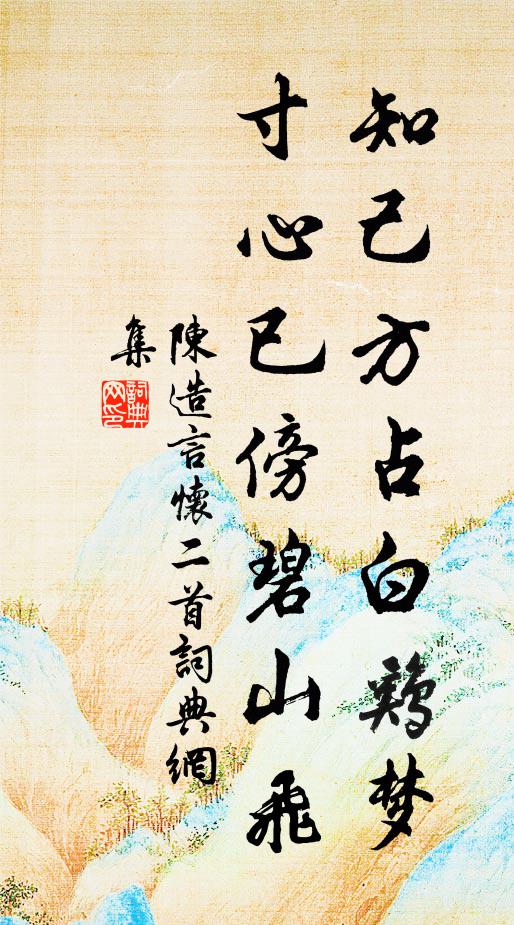 知己方占白鷄梦
寸心已傍碧山飛
陳造言懷二首詞典網
集
詞典
网印